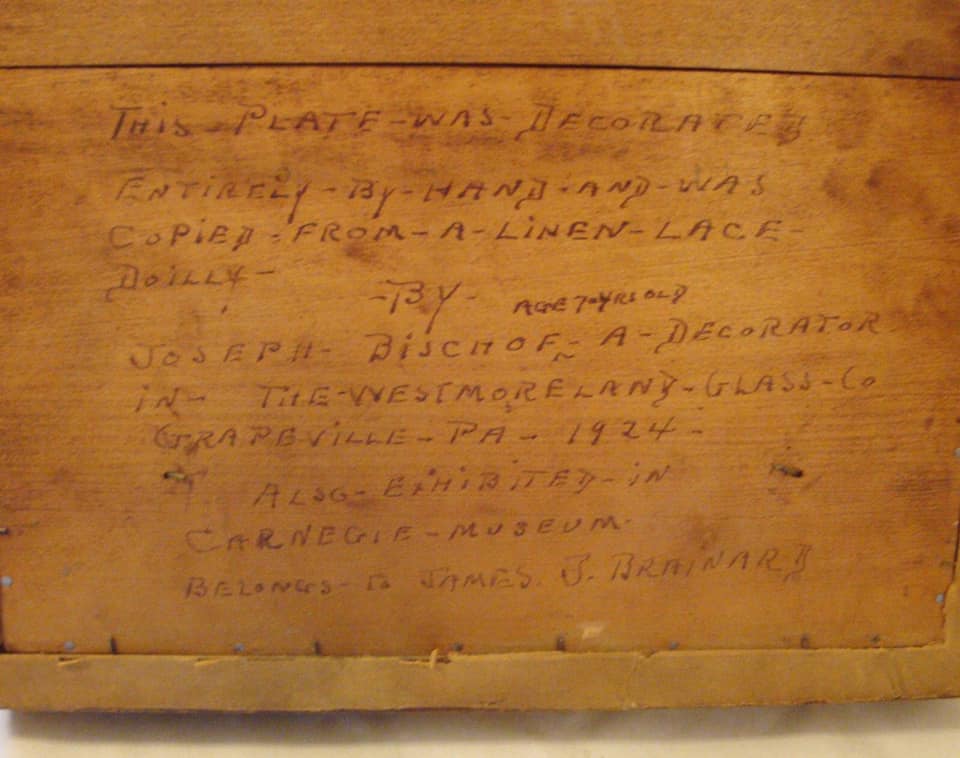 THIS - PLATE - WAS - DECORATED
ENTIRELY - BY - HAND - AND - WAS
COPIED - FROM - A - LINEN - LACE -
DOILLY -
- BY -
AGE 70 YRS OLD
JOSEPH - BISCHOF - A - DECORATOR
IN - THE - WESTMORELAND - GLASS - CO
GRAPEVILLE - PA - 1924 -
ALSO - EXHIBITED - IN
CARNEGIE - MUSEUM
BELONGS - TO JAMES J. BRAINARD